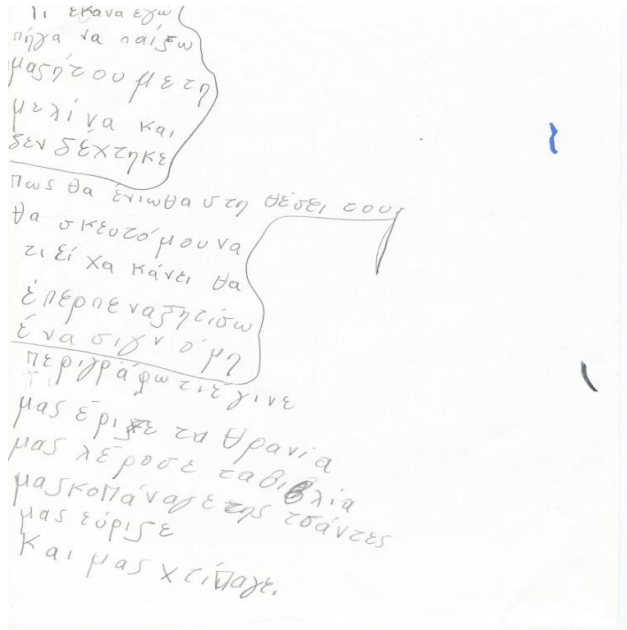 Τι έκανα εγώ
πήγα να παίξω
μαζήτου με τη
μελίνα και
δεν δέχτηκε
πως θα ένιωθα στη θέσει τους
θα σκευτόμουνα
τι εί χα κάνει θα
έπερπε ναζητίσω
ένα σιγν ό μη
περιγράφω τι έγινε
μας έριξε τα θρανία
μας λέροσε ταβιβλία
μας κοπάναγε της τσάντες
μας εύριζε
και μας χτίπαγε.